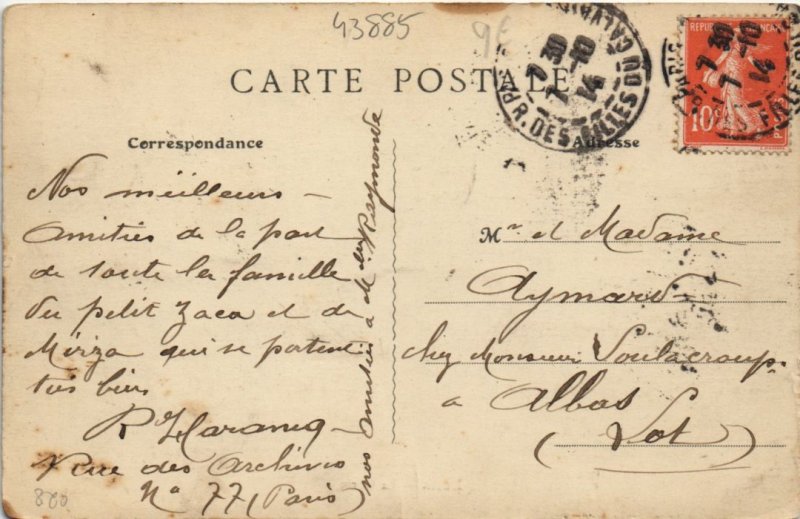 43885
9€
CARTE POSTALE
PARIS
7 30
7 -10
14
R. DES FILLES DU CALVAIRE
REPUBLIQUE FRANÇAISE
10c
POSTES
Correspondance
Adresse
Nos meilleurs
Amitiés de la part
de toute la famille
du petit Zaca et de
Mirza qui se portent
très bien
R
Rue des Archives
No 77 (Paris)
820
nos amitiés à Raymonde
Mr et Madame
Aymard
chez Monsieur Soulacroup
a Albas
(Lot)